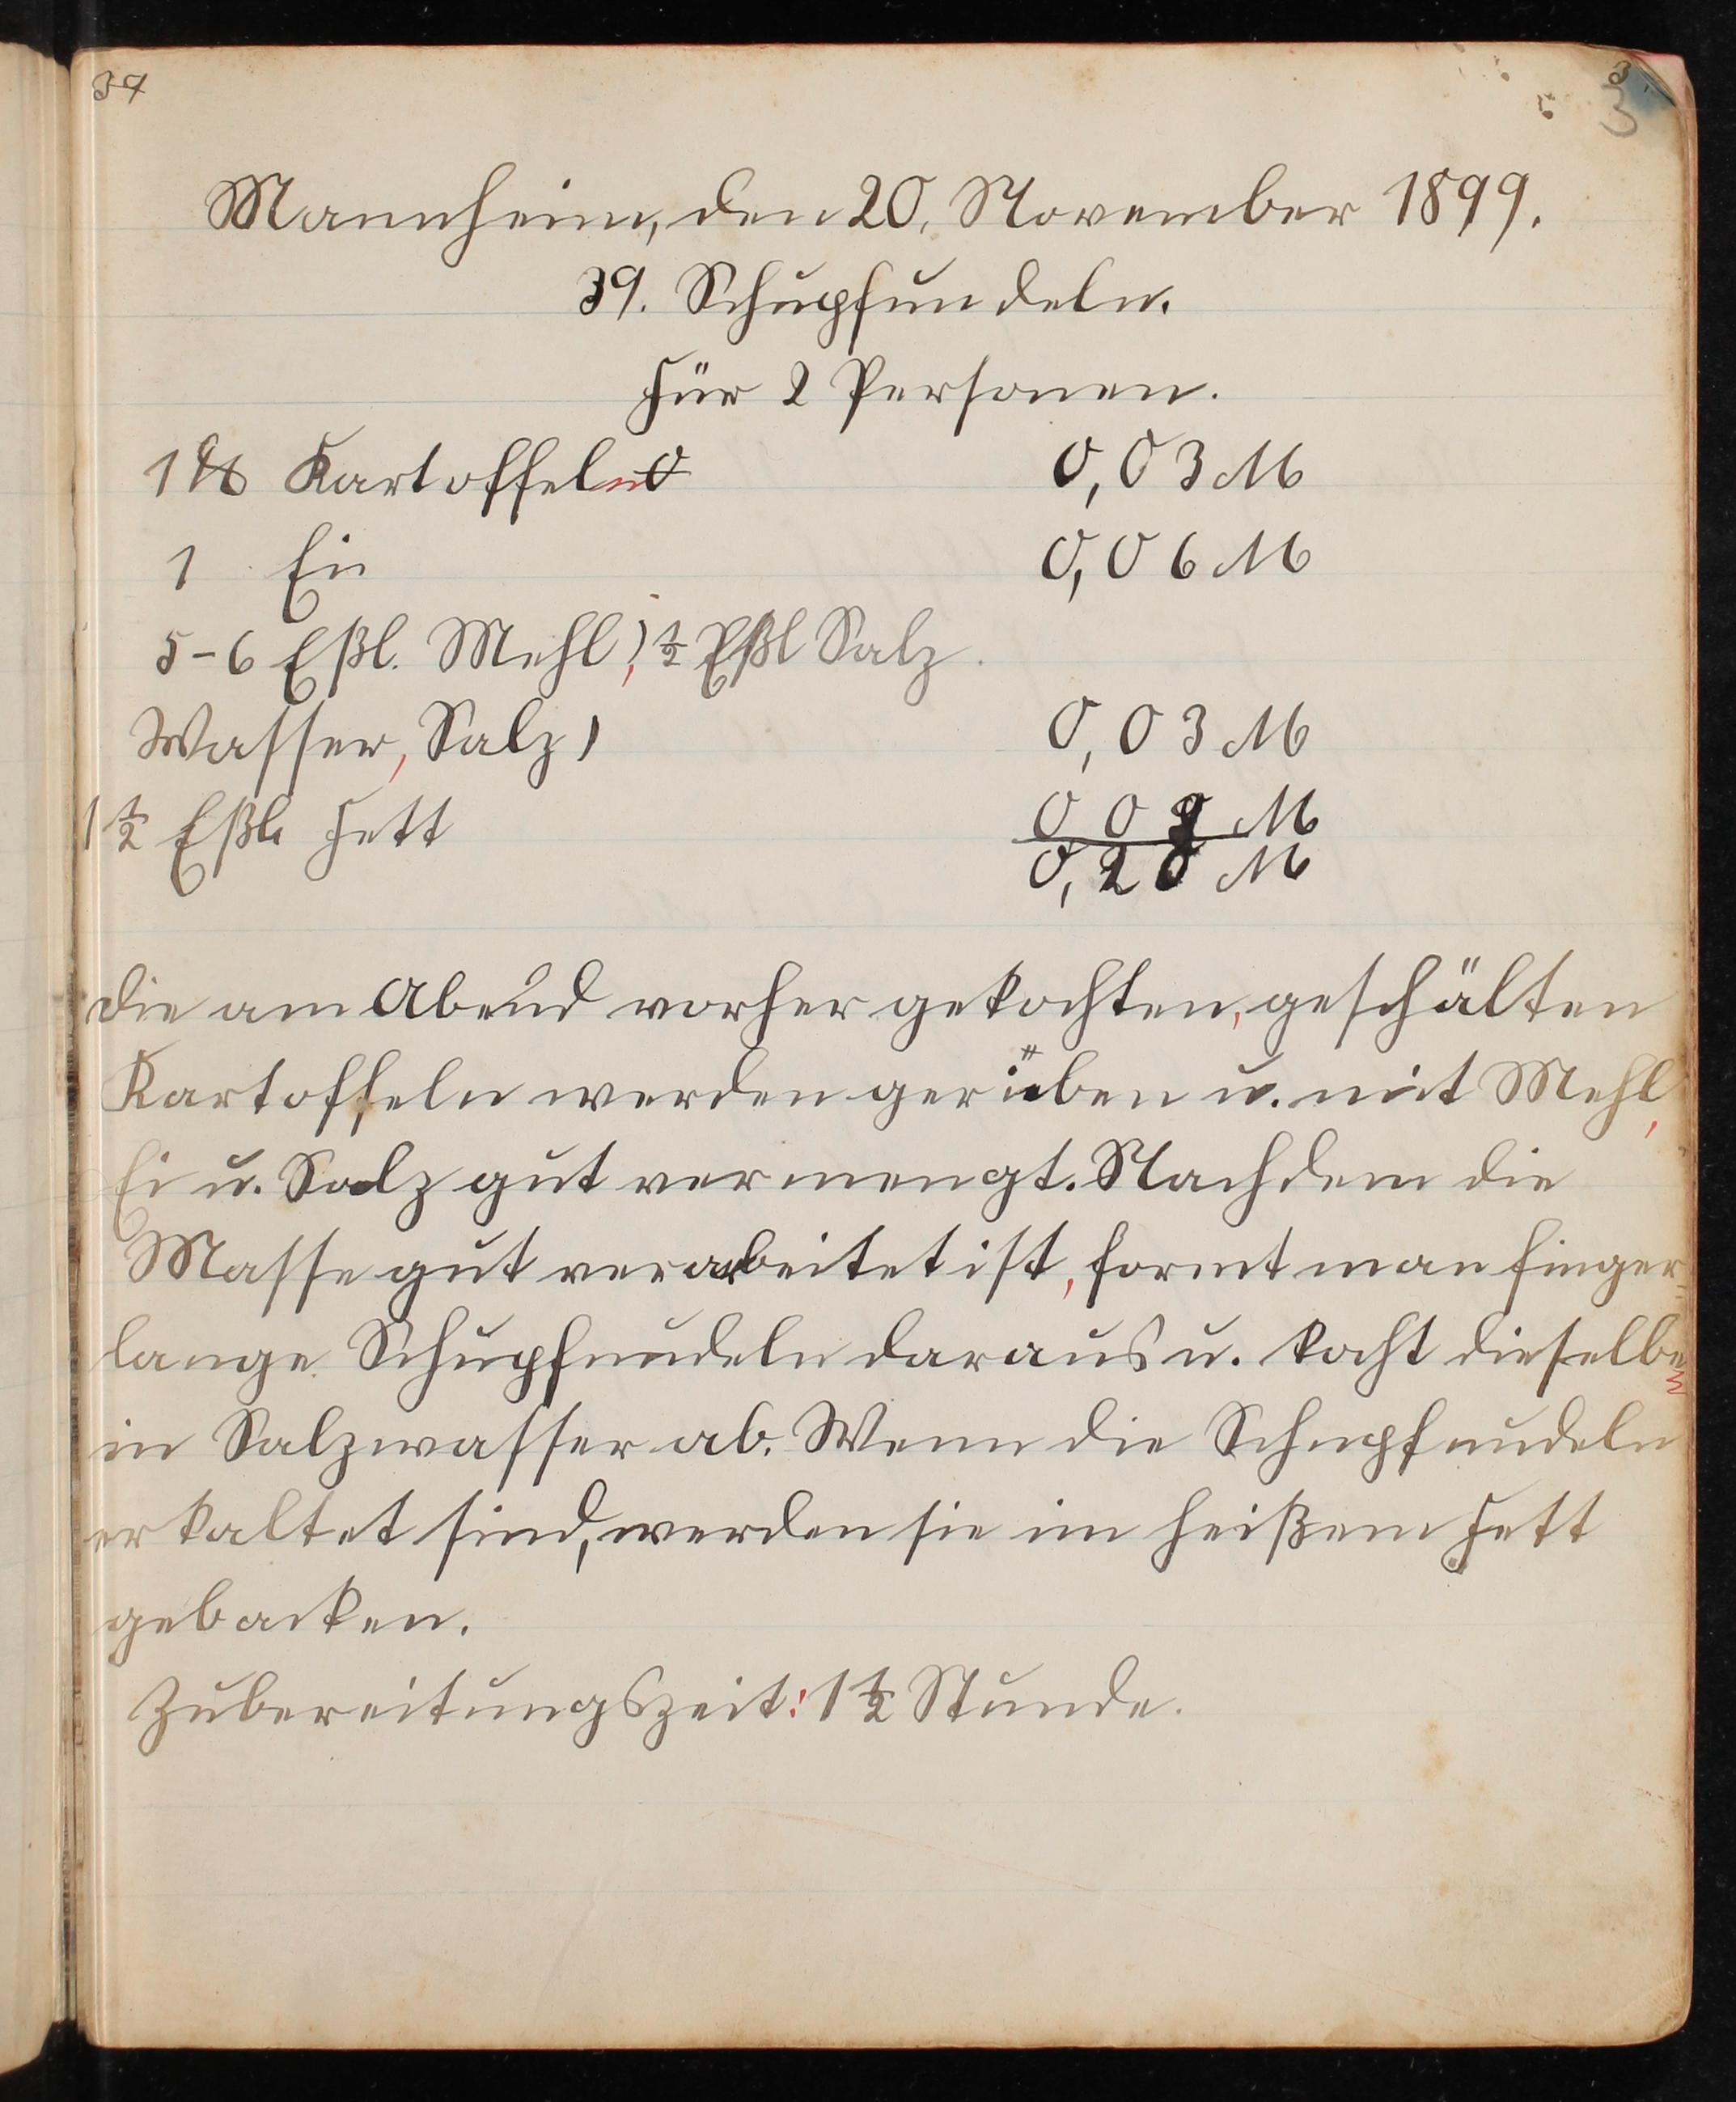 34
3
Mannheim, den 20. November 1899.
39. Schupfnudeln.
Für 2 Personen.
1 ℔ Kartoffeln 0,03 M
1 Ei 0,06 M
5-6 Eßl. Mehl, ½ Eßl Salz.
Wasser, Salz 0,03 M
1½ Eßl. Fett 0 08 M
0,20 M
die am Abend vorher gekochten, geschälten
Kartoffeln werden gerieben u. mit Mehl,
Ei u. Salz gut vermengt. Nachdem die
Masse gut verarbeitet ist, formt man finger-
lange Schupfnudeln daraus u. kocht dieselbe
in Salzwasser ab. Wenn die Schupfnudeln
erkaltet sind, werden sie im heißem Fett
gebacken.
Zubereitungszeit: 1½ Stunde.